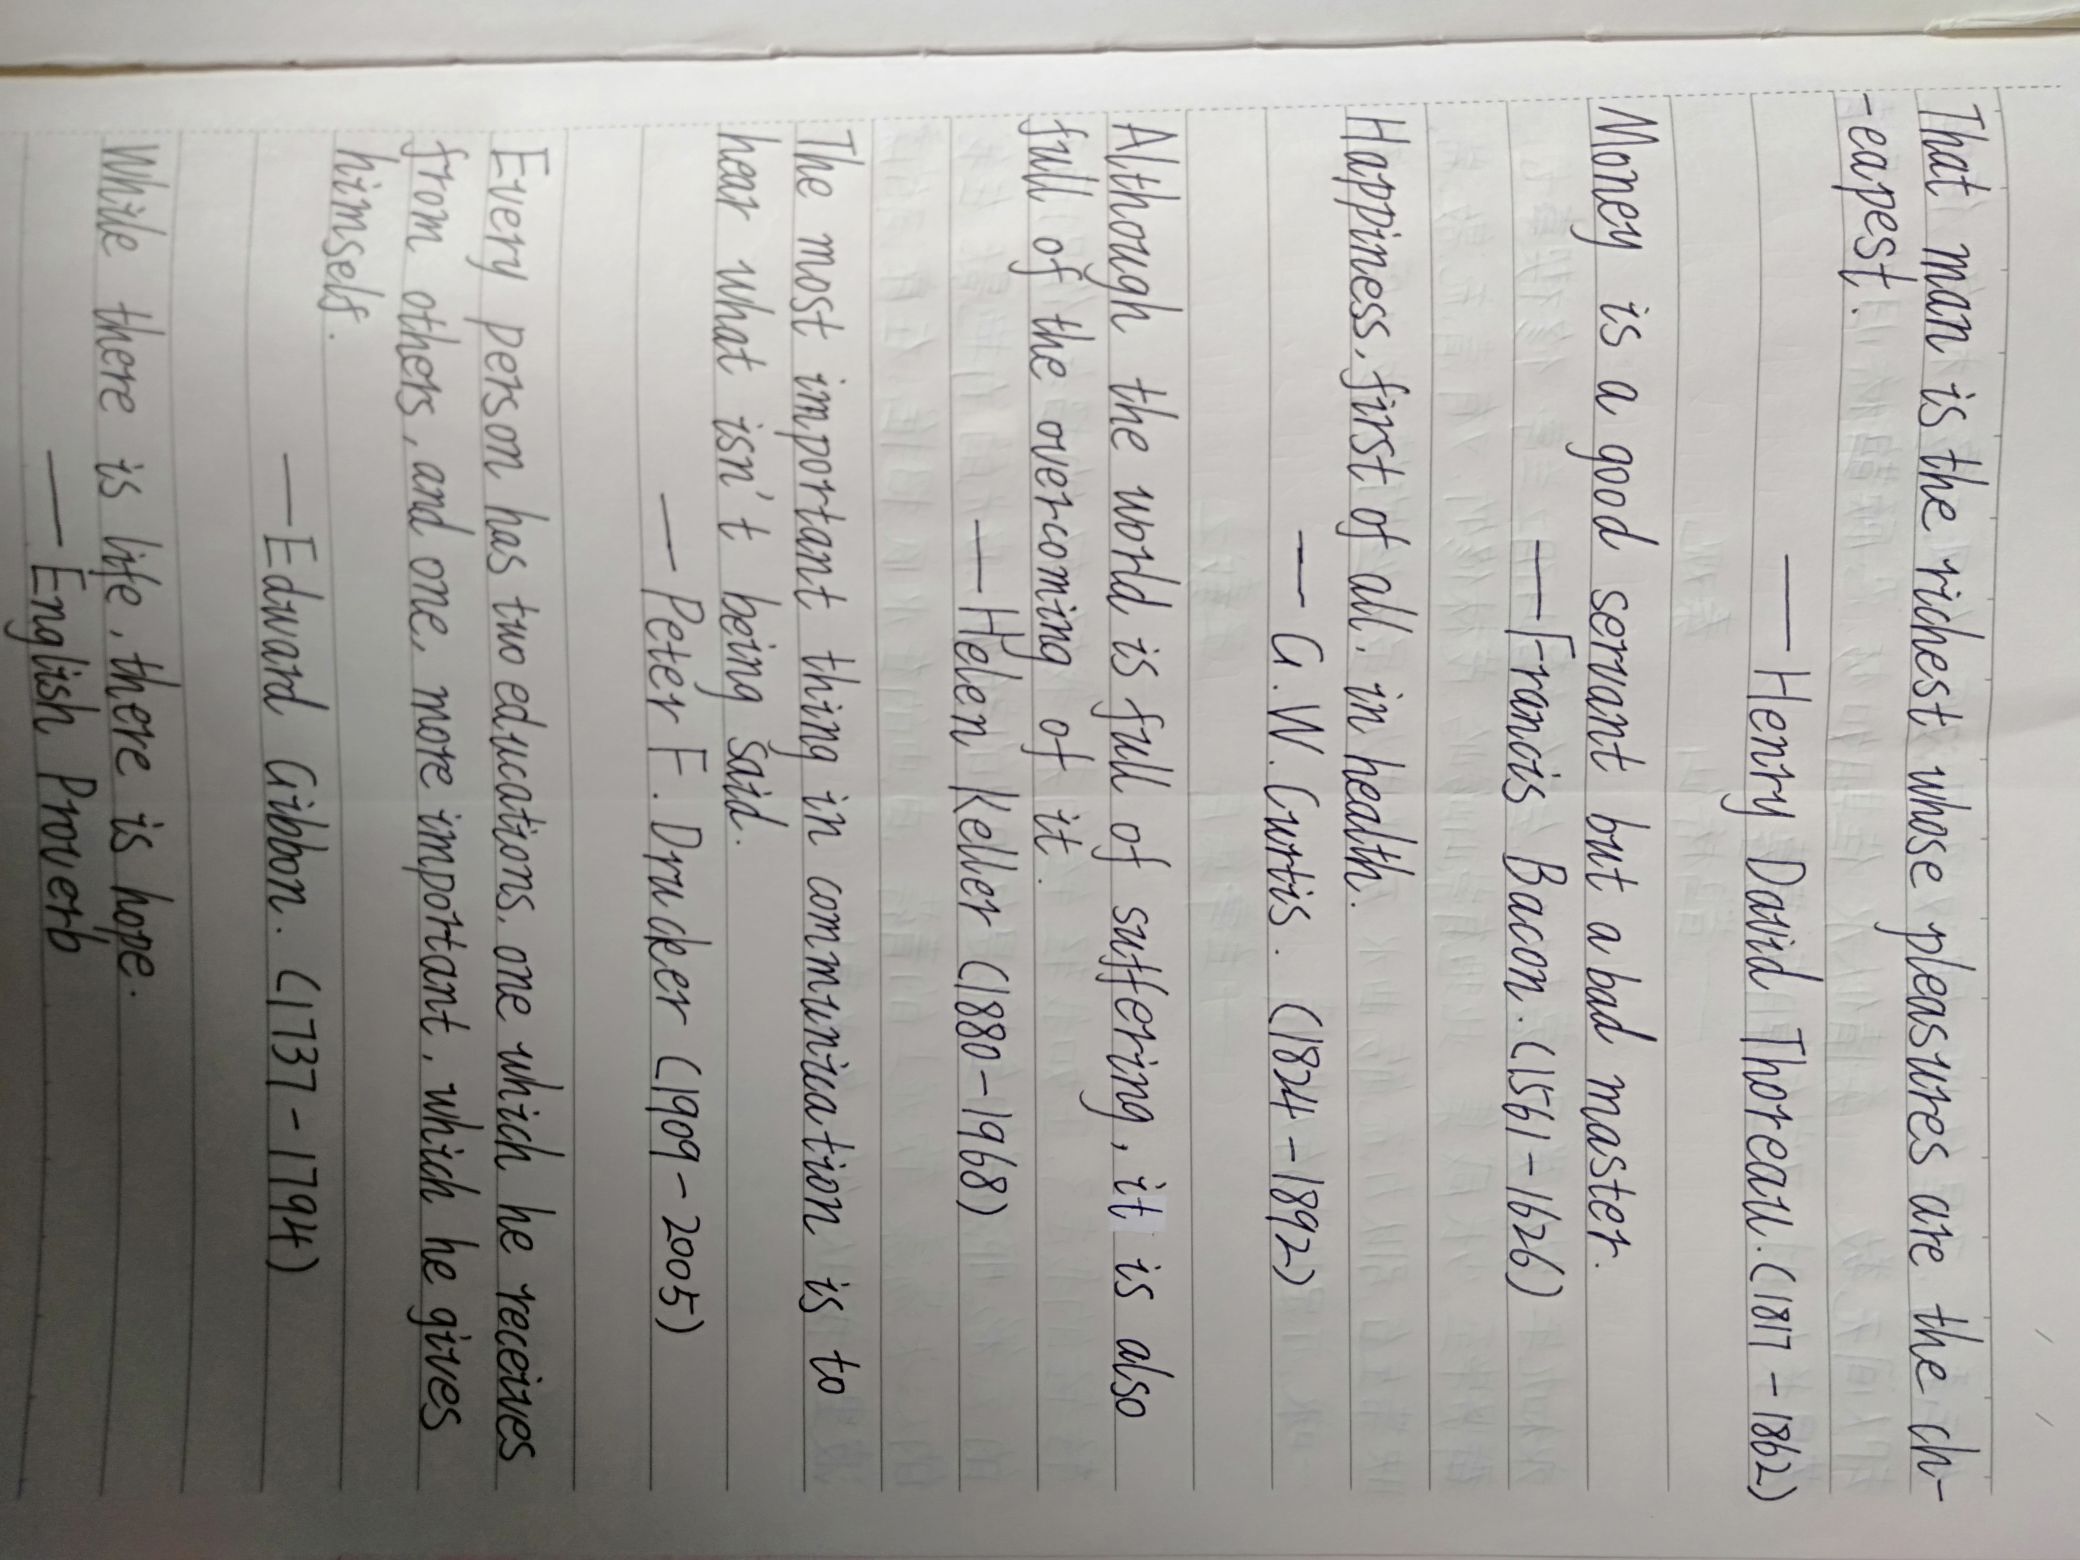 That man is the richest whose pleasures are the ch-
-eapest.
—— Henry David Thoreau. (1817-1862)
Money is a good servant but a bad master.
—— Francis Bacon. (1561-1626)
Happiness, first of all, in health.
—— G.W. Curtis. (1824-1892)
Although the world is full of suffering, it is also
full of the overcoming of it.
—— Helen Keller (1880-1968)
The most important thing in communication is to
hear what isn't being said.
—— Peter F. Drucker (1909-2005)
Every person has two educations, one which he receives
from others, and one, more important, which he gives
himself.
—— Edward Gibbon. (1737-1794)
While there is life, there is hope.
—— English Proverb